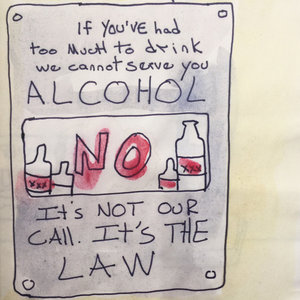 If you've had
too much to drink
we cannot serve you
ALCOHOL
NO
XXX
XXX
It's NOT OUR
CALL. It's THE
LAW